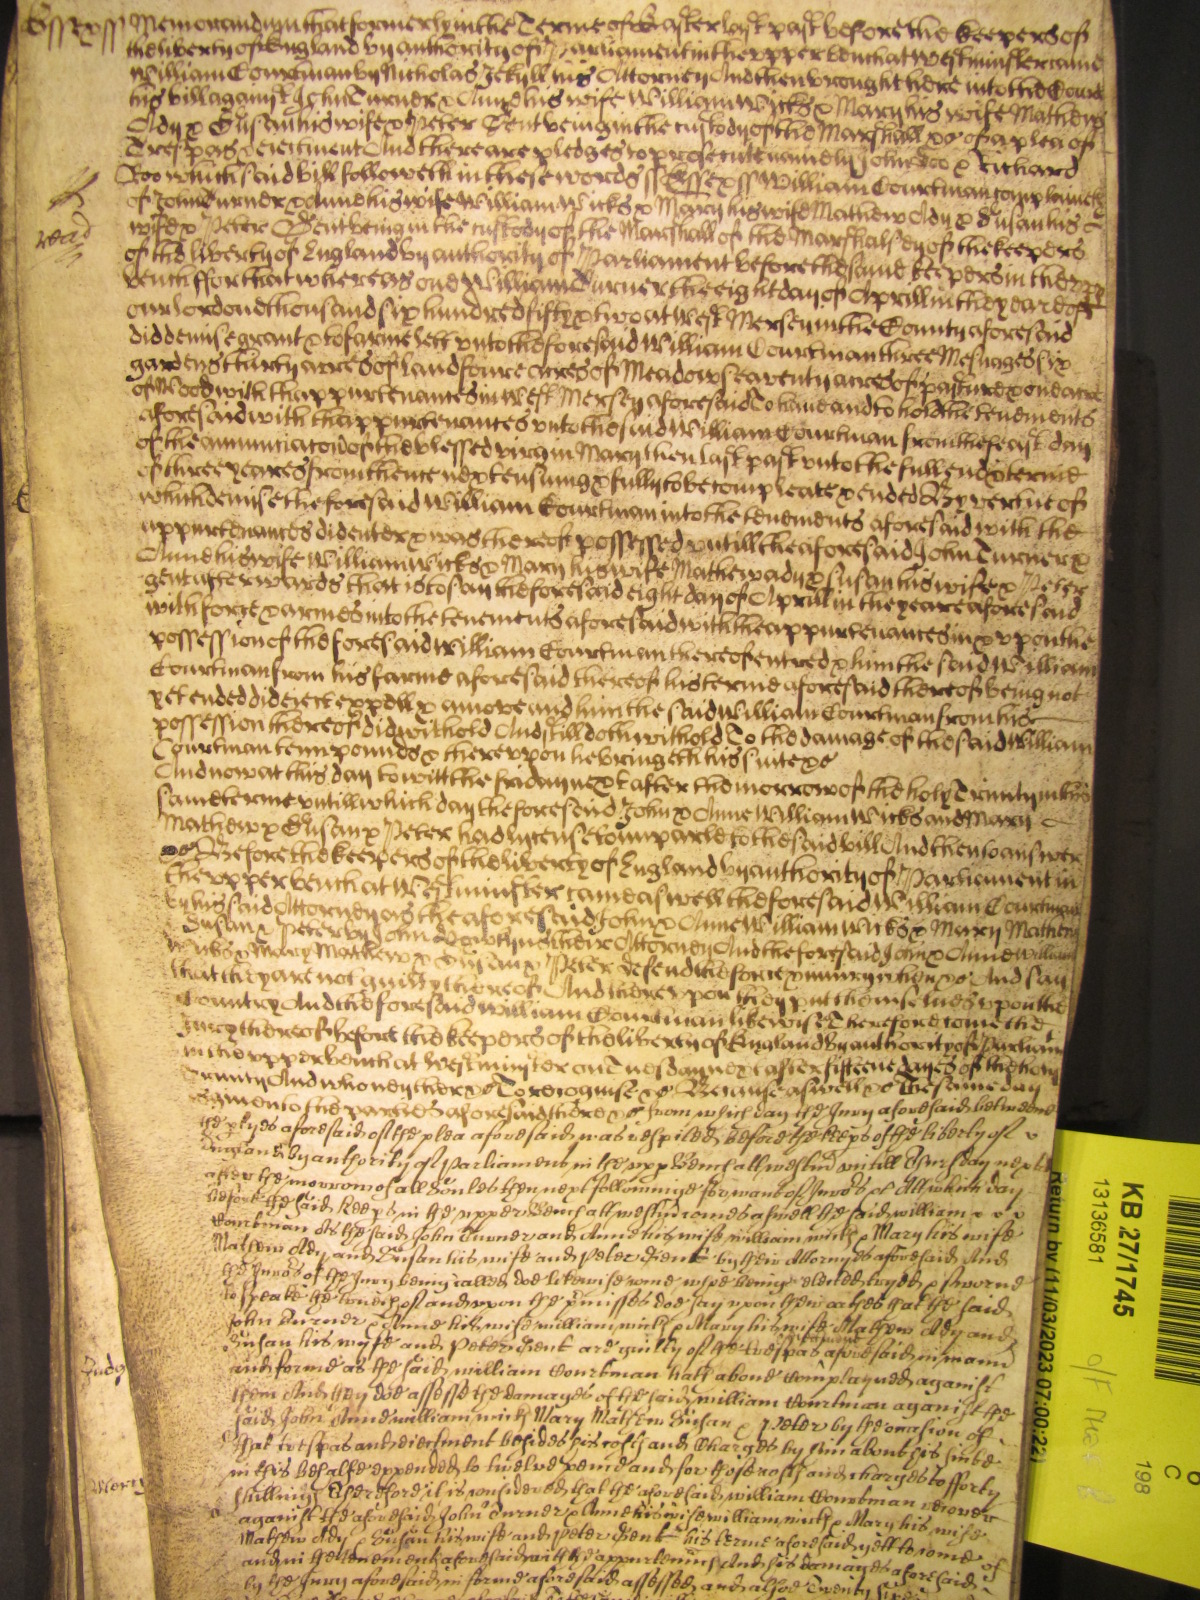 Essex ss Memorandum that formerly in the Terme of Easter last past before the keepers of
the liberty of England by authority of Parliament in the upper bench at Westminster came
William Courtman by Nicholas Jekyll his Attorney And then brought here into the Court
his bill against John Turner & Anne his wife William Wicks & Mary his wife Mathew
Ady & Susan his wife & Peter Gent being in the custody of the Marshall &c of a plea of
Trespas & eiectment And there are pledges to prosecute namely John Doo & Richard
Roo which said bill followeth in these words ss Essex ss William Courtman complaineth
of John Turner & Anne his wife William Wicks & Mary his wife Mathew Ady & Susan his
wife & Peter Gent being in the custody of the Marshall of the Marshalsey of the keepers
of the liberty of England by authority of Parliament before the same keepers in the upper
bench ffor that whereas one William Turner the eight day of Aprill in the yeare of
our lord one thousand six hundred fifty & two at West Mersey in the County aforesaid
did demise grant & to farme lett unto the foresaid William Courtman three Mesuages six
gardens thirty acres of land foure acres of Meadow seaventy acres of pasture & one acre
of Wood with thappurtenances in West Mersey aforesaid To have and to hold the tenements
aforesaid with thappurtenances unto the said William Courtman from the feast day
of the annunciacon of the blessed virgin Mary then last past unto the full end & terme
of three yeares from thence next ensuing & fully to be compleate & ended By vertue of
which demise the foresaid William Courtman into the tenements aforesaid with the
appurtenances did enter & was thereof possessed untill the aforesaid John Turner &
Anne his wife William Wicks & Mary his wife Mathew ady & susan his wife & Peter
gent afterwards that is to say the foresaid eight day of Aprill in the yeare aforesaid
with force & armes into the tenements aforesaid with the appurtenances in & upon the
possession of the foresaid William Courtman thereof entred & him the said William
Courtman from his farme aforesaid thereof his terme aforesaid thereof being not
yet ended did eiect expell & amove and him the said William Courtman from his
possession thereof did withold And still doth withold To the damage of the said William
Courtman tenn pounds & thereupon he bringeth his suite &c
And now at this day to witt the friday next after the morrow of the holy Trinity in this
same terme untill which day the foresaid John & Anne William Wicks and Mary
Mathew & Susan & Peter had license to imparle to the said bill And then to answer
&c Before the keepers of the liberty of England by authority of Parliament in
the upper bench at Westminster came aswell the foresaid William Courtman
by his said Attorney as the aforesaid John & Anne William Wicks & Mary Mathew
Susan & Peter by John their Attorney And the foresaid John & Anne William
Wicks & Mary Mathew & Susan & Peter defend the force & iniury when &c And say
that they are not guilty thereof And thereupon they put themselves upon the
Country And the foresaid William Courtman likewise Therefore come the
Jury thereof before the keepers of the liberty of England by authority of Parliam
in the upper bench at Westminster on Tuesday next after fifteene dayes of the holy
Trinity And who neyther &c To recognise &c Because aswell &c The same day
is given to the parties aforesaid there &c From which day the Jury aforesaid betweene
the ptyes aforesaid of the plea aforesaid was respited before the keeps of the liberty of
England by authority of Parliament in the upp Bench att Westm untill Thursday next
after the morrow of all Soules then next followinge for want of Juro's &c Att which day
before the said keeps in the upper Bench att Westm comes aswell the said William
Courtman As the said John Turner and Anne his wife William Wicks & Mary his wife
Mathew Ady and Susan his wife and Peter Gent by their Attorneys aforesaid And
the Juro's of the Jury being called doe likewise come whoe being elected tryed & sworne
to speake the trueth of and upon the pmisses doe say upon their oathes that the said
John Turner & Anne his wife William Wicks & Mary his wife Mathew Ady and
Susan his wife and Peter Gent are guilty of the trespas aforesaid in mann
and forme as the said William Courtman hath above complayned against
them And they doe assesse the damages of the said William Courtman against the
said John Anne William Wicks Mary Mathew Susan & Peter by the occasion of
that trespas and eiectment besides his costs and Charges by him about his suite
in this behalfe expended to twelve pence and for those costs and charges to fforty
shillings Therefore it is considered that the aforesaid William Courtman recover
against the aforesaid John Turner & Anne his wife William Wicks & Mary his wife
Mathew Ady & Susan his wife and Peter Gent his terme aforesaid yett to come of
and in the tenements aforesaid with the appurtennc's And his damages aforesaid
by the Jury aforesaid in forme aforesaid assessed and alsoe Twenty
read
Judg
Mercy
KB 27/1745
13136581
Return by (11/03/2023 07:00:22)
C
198